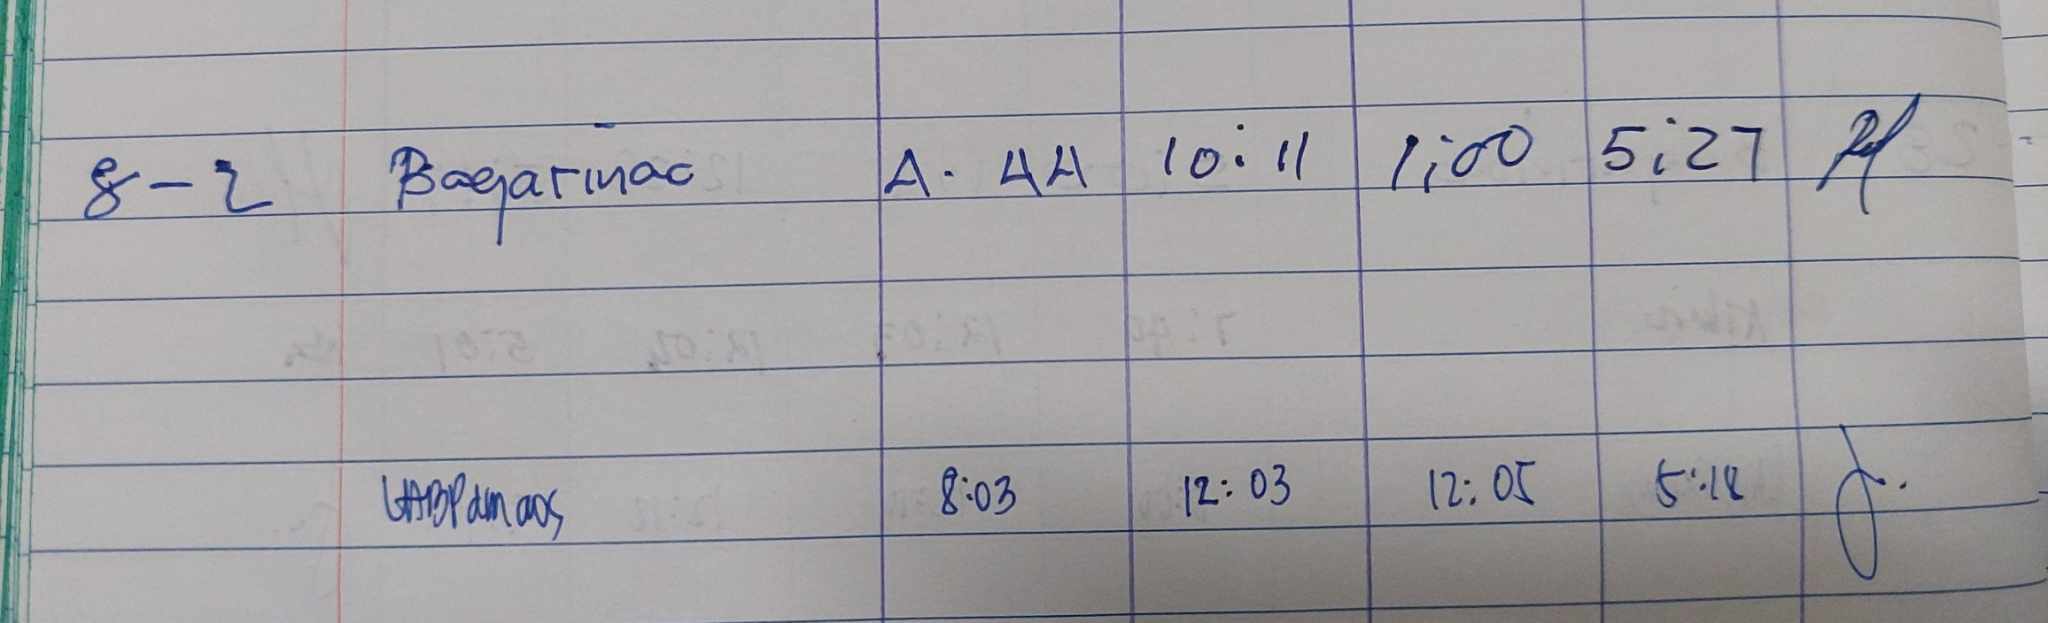 8-2 Bagarinao A. 44 10:11 1:00 5:27
8:03 12:03 12:05 5:18